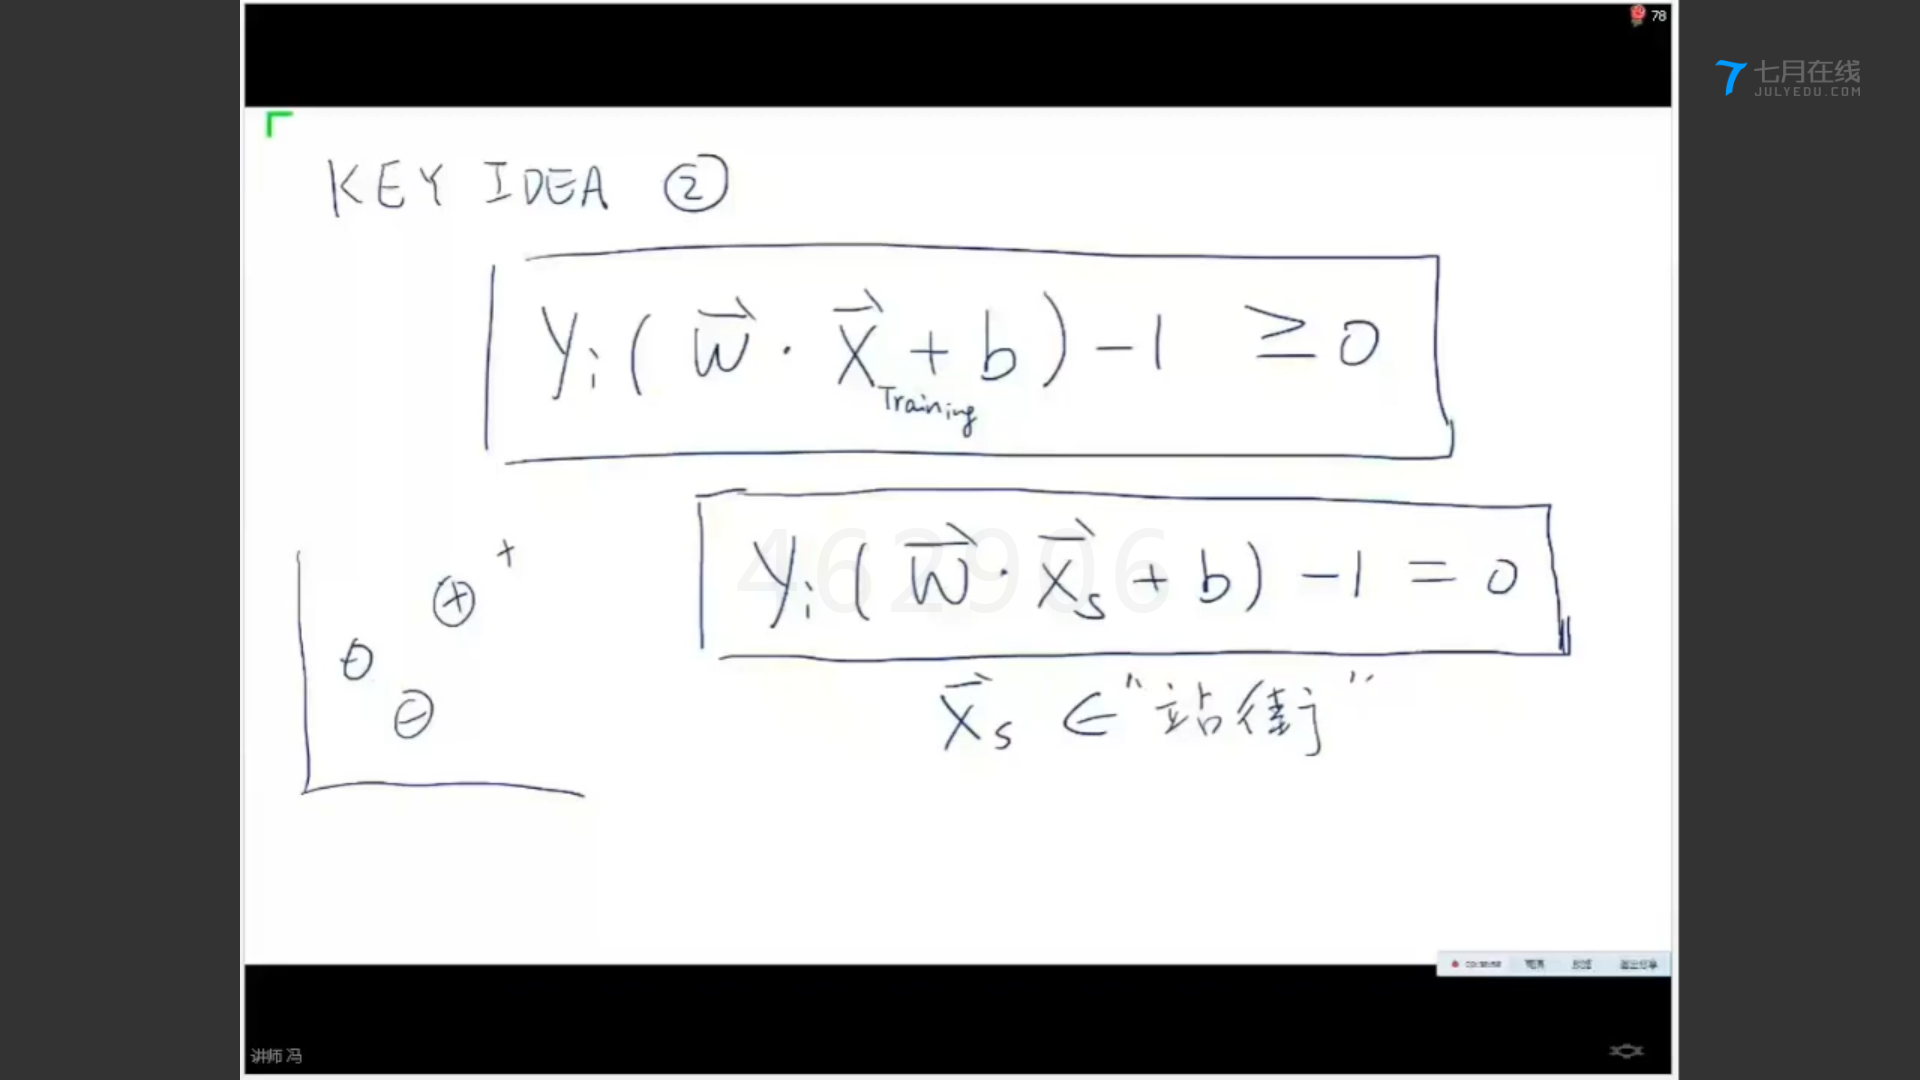 78
七月在线
JULYEDU.COM
KEY IDEA ②
yᵢ( w⃗ · x⃗_Training + b ) - 1 ≥ 0
yᵢ( w⃗ · x⃗ₛ + b ) - 1 = 0
462906
x⃗ₛ ∈ "站街"
+
⊕
⊖
⊖
讲师 冯